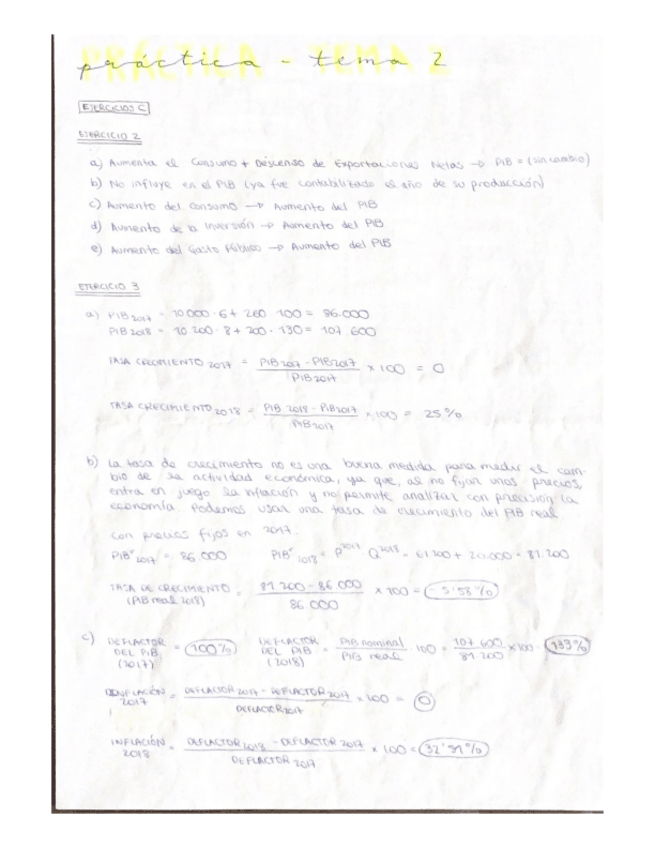 práctica - tema 2
EJERCICIOS C
EJERCICIO 2
a) Aumenta el Consumo + Descenso de Exportaciones Netas → PIB = (sin cambio)
b) No influye en el PIB (ya fue contabilizado el año de su producción)
c) Aumento del consumo → Aumento del PIB
d) Aumento de la Inversión → Aumento del PIB
e) Aumento del Gasto Público → Aumento del PIB
EJERCICIO 3
a) PIB 2017 = 10000 · 6 + 260 · 100 = 86.000
PIB 2018 = 10.200 · 8 + 200 · 130 = 107.600
TASA CRECIMIENTO 2017 = (PIB 2017 - PIB 2017) / PIB 2017 x 100 = 0
TASA CRECIMIENTO 2018 = (PIB 2018 - PIB 2017) / PIB 2017 x 100 = 25%
b) La tasa de crecimiento no es una buena medida para medir el cam-
bio de la actividad económica, ya que, al no fijar unos precios,
entra en juego la inflación y no permite analizar con precisión la
economía. Podemos usar una tasa de crecimiento del PIB real
con precios fijos en 2017.
PIBʳ 2017 = 86.000 PIBʳ 2018 = P²⁰¹⁷ Q²⁰¹⁸ = 61.200 + 20.000 = 81.200
TASA DE CRECIMIENTO (PIB real 2018) = (81.200 - 86.000) / 86.000 x 100 = -5'58%
c) DEFLACTOR DEL PIB (2017) = 100% DEFLACTOR DEL PIB (2018) = PIB nominal / PIB real · 100 = 107.600 / 81.200 x 100 = 133%
INFLACIÓN 2017 = (DEFLACTOR 2017 - DEFLACTOR 2017) / DEFLACTOR 2017 x 100 = 0
INFLACIÓN 2018 = (DEFLACTOR 2018 - DEFLACTOR 2017) / DEFLACTOR 2017 x 100 = 32'51%